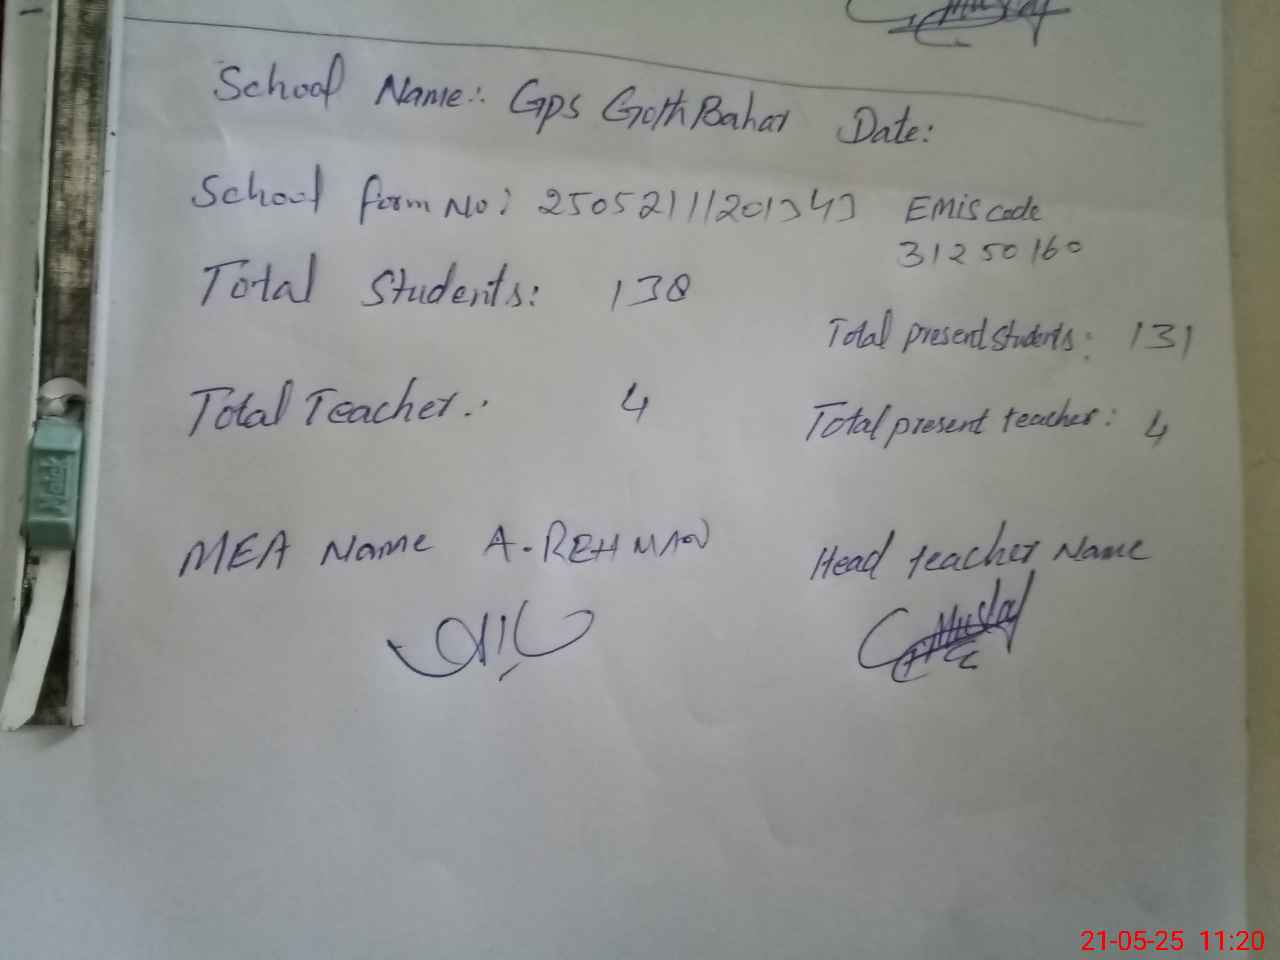 School Name:. Gps Goth Bahar Date:
School form No: 25052111201343 EMIS code
31250160
Total Students: 138
Total present students: 131
Total Teacher:. 4
Total present teacher: 4
MEA Name A. REHMAN
Head teacher Name
21-05-25 11:20